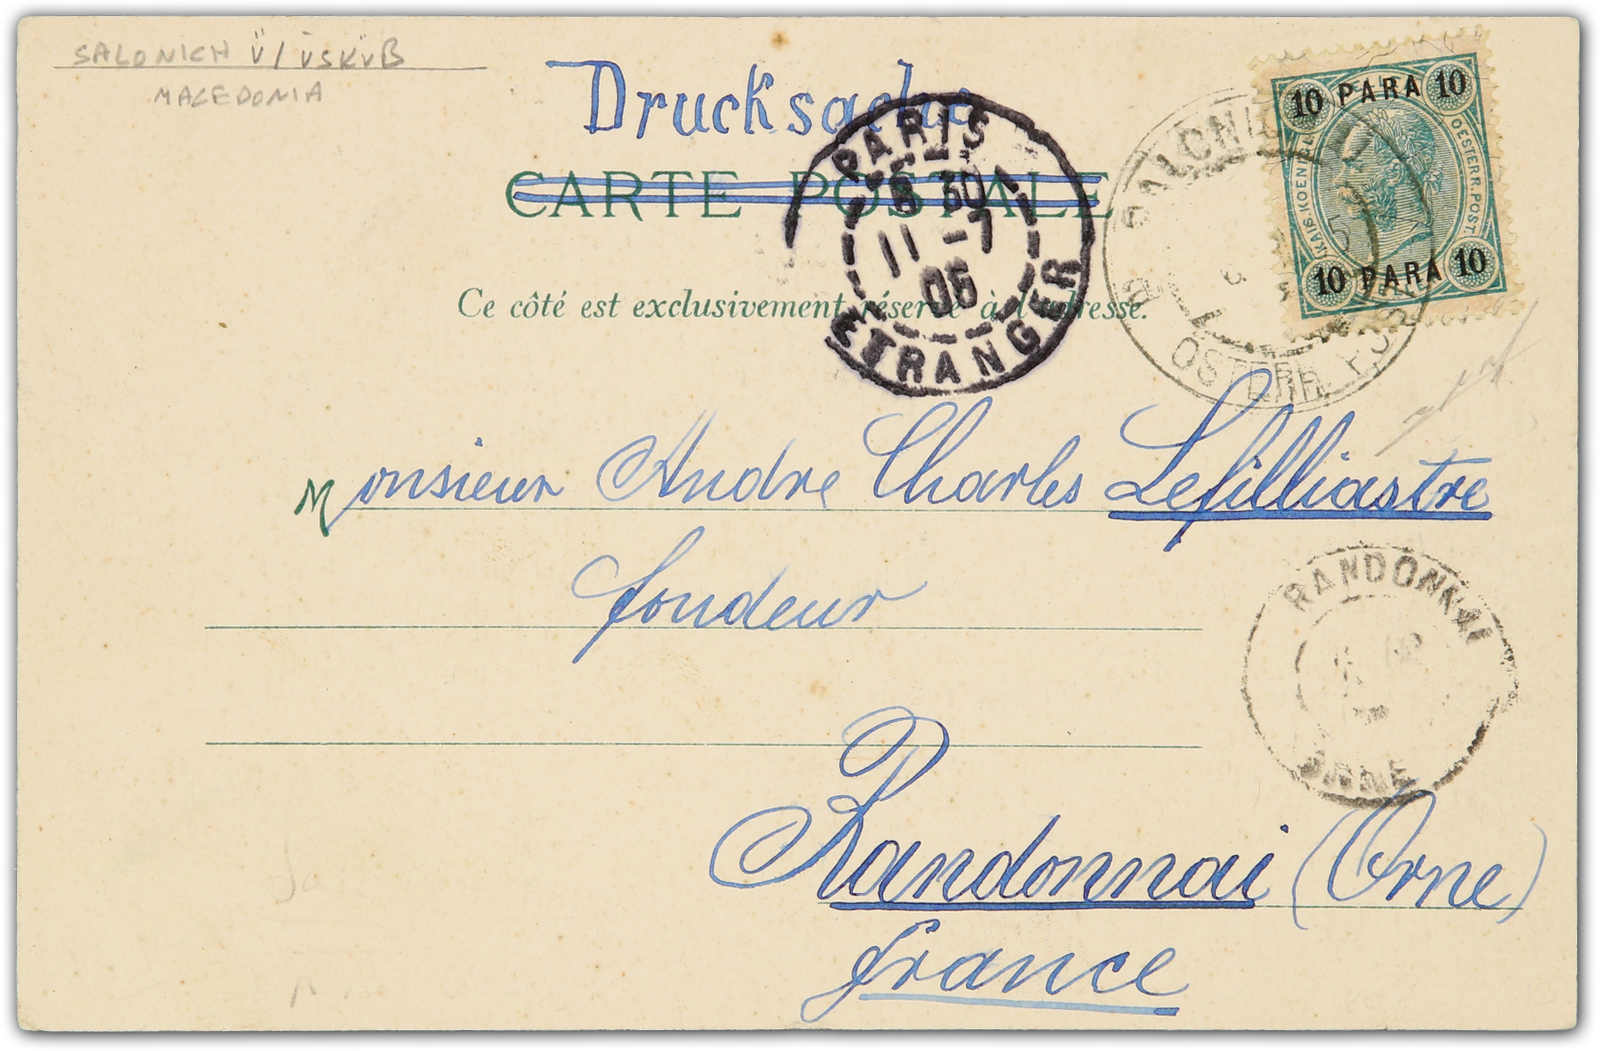 SALONICH Ü/ÜSKÜB
MACEDONIA
Drucksache
CARTE POSTALE
Ce côté est exclusivement réservé à l'adresse.
PARIS
8 30
11 -7
06
ETRANGER
10 PARA 10
KAIS. KOENIGL.
OESTERR. POST.
10 PARA 10
OSTERR. POST
Monsieur Andre Charles Lefilliastre
fondeur
RANDONNAI
ORNE
Randonnai (Orne)
france